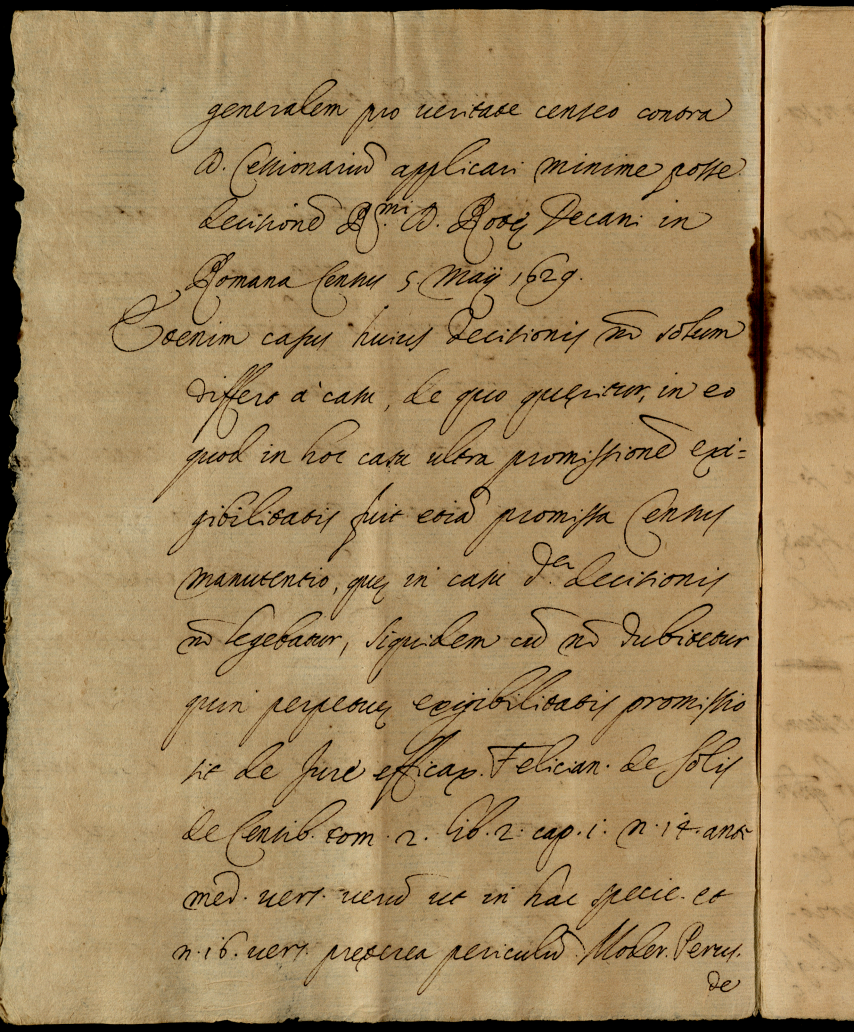 generalem pro veritate censeo contra
D. Cessionariũ applicari minime posse
decisionẽ R.mi D. Rotę Decani in
Romana Census 5. Maij 1629.
Etenim casus huius Decisionis nõ solum
differt à casu, de quo quęritur, in eo
quod in hoc casu ultra promissionẽ exi=
gibilitatis fuit etiã promissa Census
manutentio, quę in casu d.ę decisionis
nõ legebatur, siquidem cũ nõ dubitetur
quin perpetuę exigibilitatis promissio
sit de Jure efficax. Felician. de Solis
de Censib. tom. 2. lib. 2. cap. 1. n. 14. ante
med. vers. verũ ut in hac specie. et
n. 16. vers. pręterea periculũ. Moder. Perus.
de